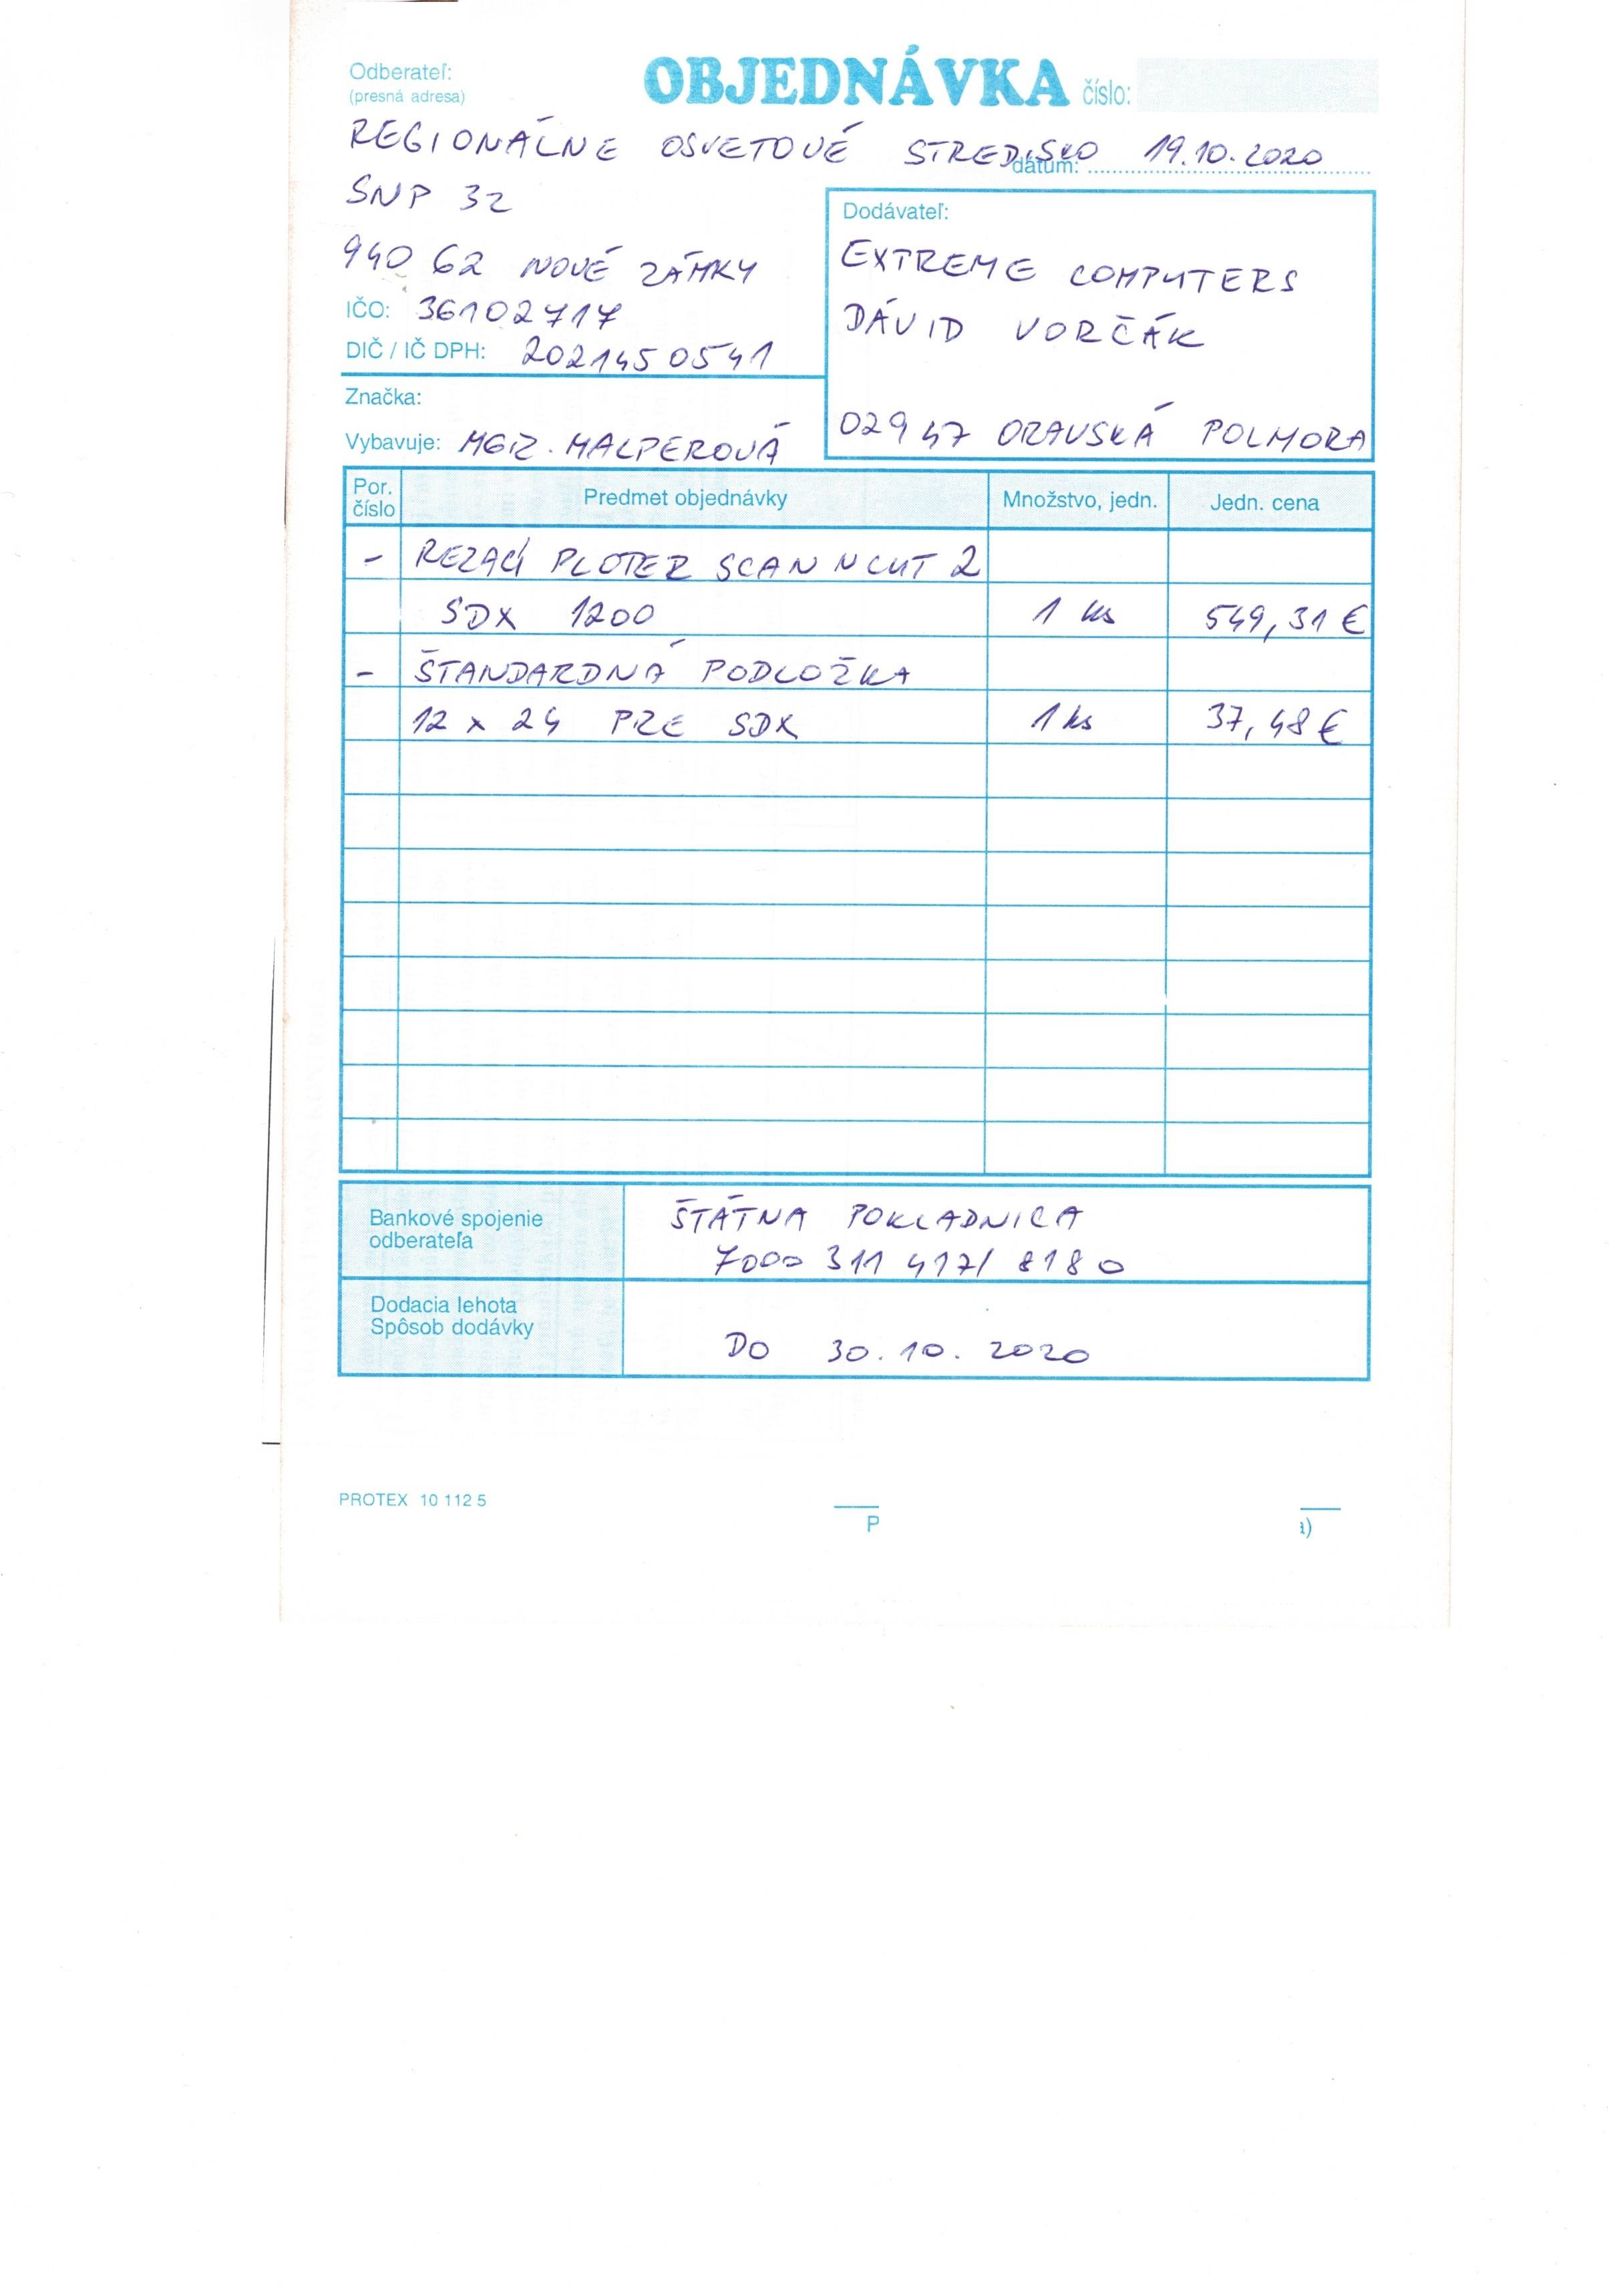 Odberateľ:
(presná adresa)
OBJEDNÁVKA číslo:
REGIONÁLNE OSVETOVÉ STREDISKO
dátum: 19.10.2020
SNP 32
940 62 NOVÉ ZÁMKY
IČO: 36102717
DIČ / IČ DPH: 2021450541
Značka:
Vybavuje: MGR. MALPEROVÁ
Dodávateľ:
EXTREME COMPUTERS
DÁVID VORČÁK
029 47 ORAVSKÁ POLHORA
Por. číslo Predmet objednávky Množstvo, jedn. Jedn. cena
- REZACÍ PLOTER SCAN NCUT 2
SDX 1200 1 ks 549,31 €
- ŠTANDARDNÁ PODLOŽKA
12 x 24 PRE SDX 1 ks 37,48 €
Bankové spojenie
odberateľa
ŠTÁTNA POKLADNICA
7000 311 417/ 8180
Dodacia lehota
Spôsob dodávky
DO 30.10.2020
PROTEX 10 112 5
P
a)